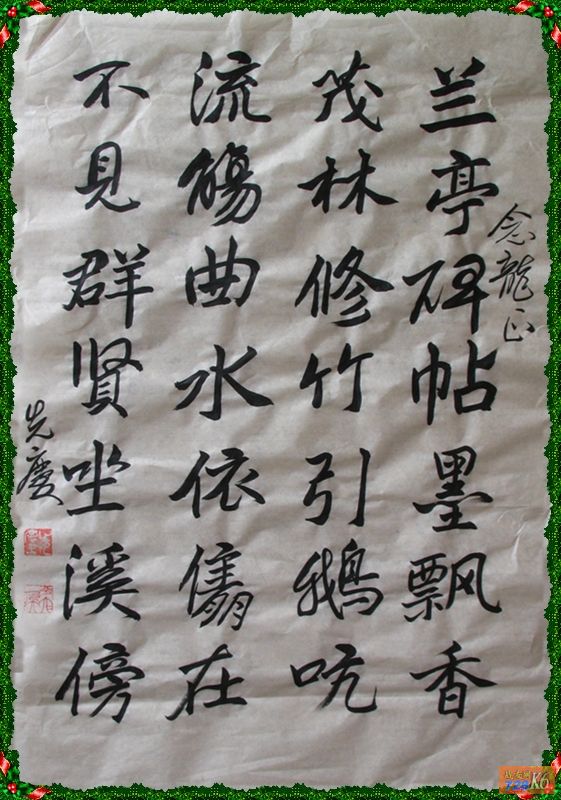 念龍正
兰亭碑帖墨飘香
茂林修竹引鹅吭
流觴曲水依儁在
不見群贤坐溪傍
先慶
K6